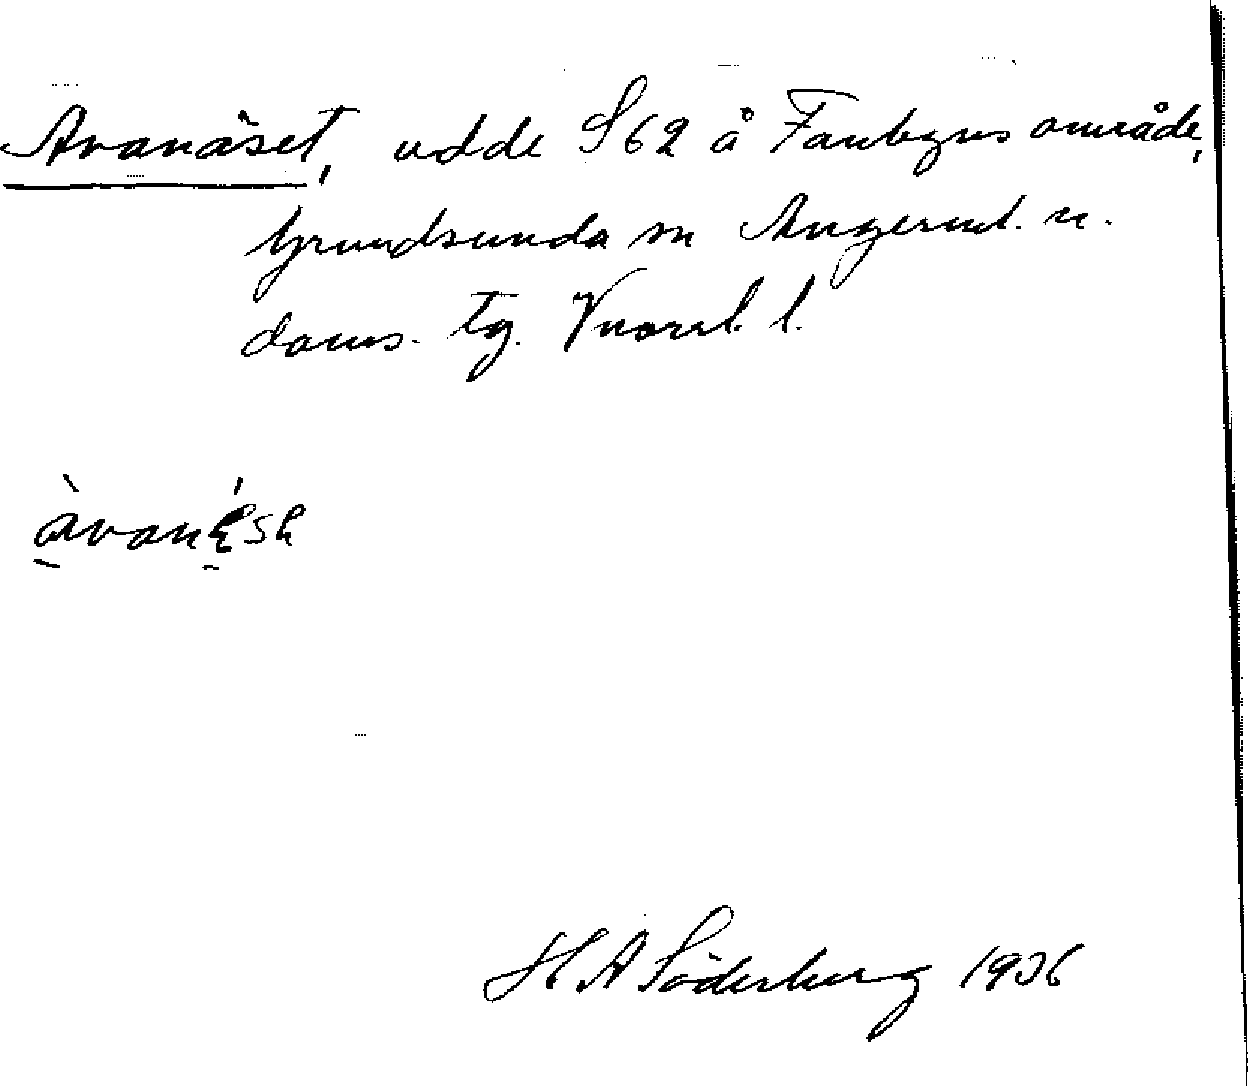 Avanäset, udde S 62 å Fanbyns område,
Grundsunda sn Ångerml. n.
doms. tg. Vnorrl. l.
àvanésh
H A Söderberg 1936